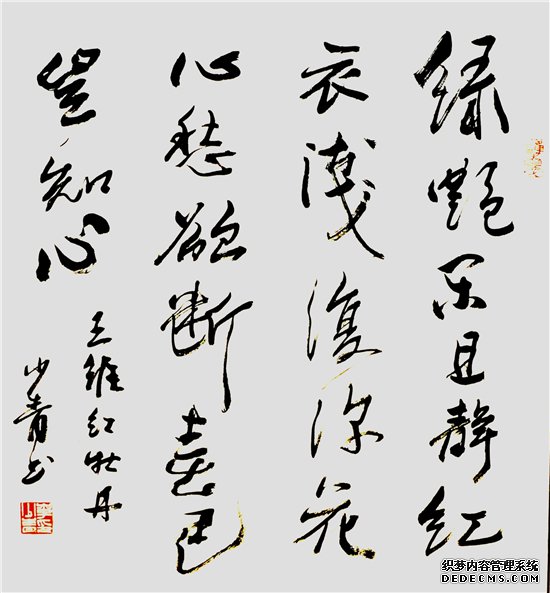 绿艷闲且静红
衣淺復深花
心愁欲斷春色
豈知心
王维红牡丹
少青书
织梦内容管理系统
DEDECMS.COM